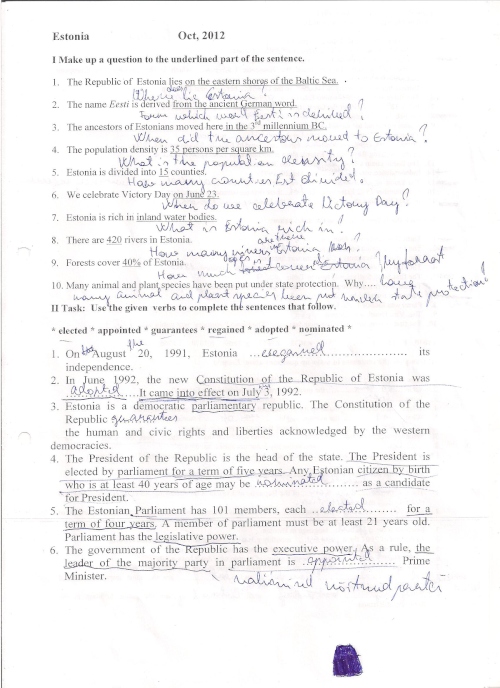 Estonia Oct, 2012
I Make up a question to the underlined part of the sentence.
1. The Republic of Estonia lies on the eastern shores of the Baltic Sea.
Where does lie Estonia?
2. The name Eesti is derived from the ancient German word.
From which word Eesti is derived?
3. The ancestors of Estonians moved here in the 3rd millennium BC.
When did the ancestors moved to Estonia?
4. The population density is 35 persons per square km.
What is the population density?
5. Estonia is divided into 15 counties.
How many countries Est divided.
6. We celebrate Victory Day on June 23.
When do we celebrate Victory Day?
7. Estonia is rich in inland water bodies.
What is Estonia rich in?
8. There are 420 rivers in Estonia.
are there
How many rivers in Estonia
9. Forests cover 40% of Estonia.
How much cover Estonia
10. Many animal and plant species have been put under state protection. Why.... have
many animal and plant species been put under state protection?
II Task: Use the given verbs to complete the sentences that follow.
* elected * appointed * guarantees * regained * adopted * nominated *
1. On the August 20, 1991, Estonia ...regained........................ its
independence.
2. In June 1992, the new Constitution of the Republic of Estonia was
...adopted.........It came into effect on July 3, 1992.
3. Estonia is a democratic parliamentary republic. The Constitution of the
Republic guarantees
the human and civic rights and liberties acknowledged by the western
democracies.
4. The President of the Republic is the head of the state. The President is
elected by parliament for a term of five years. Any Estonian citizen by birth
who is at least 40 years of age may be nominated............ as a candidate
for President.
5. The Estonian Parliament has 101 members, each ...elected......... for a
term of four years. A member of parliament must be at least 21 years old.
Parliament has the legislative power.
6. The government of the Republic has the executive power. As a rule, the
leader of the majority party in parliament is ..appointed............ Prime
Minister.